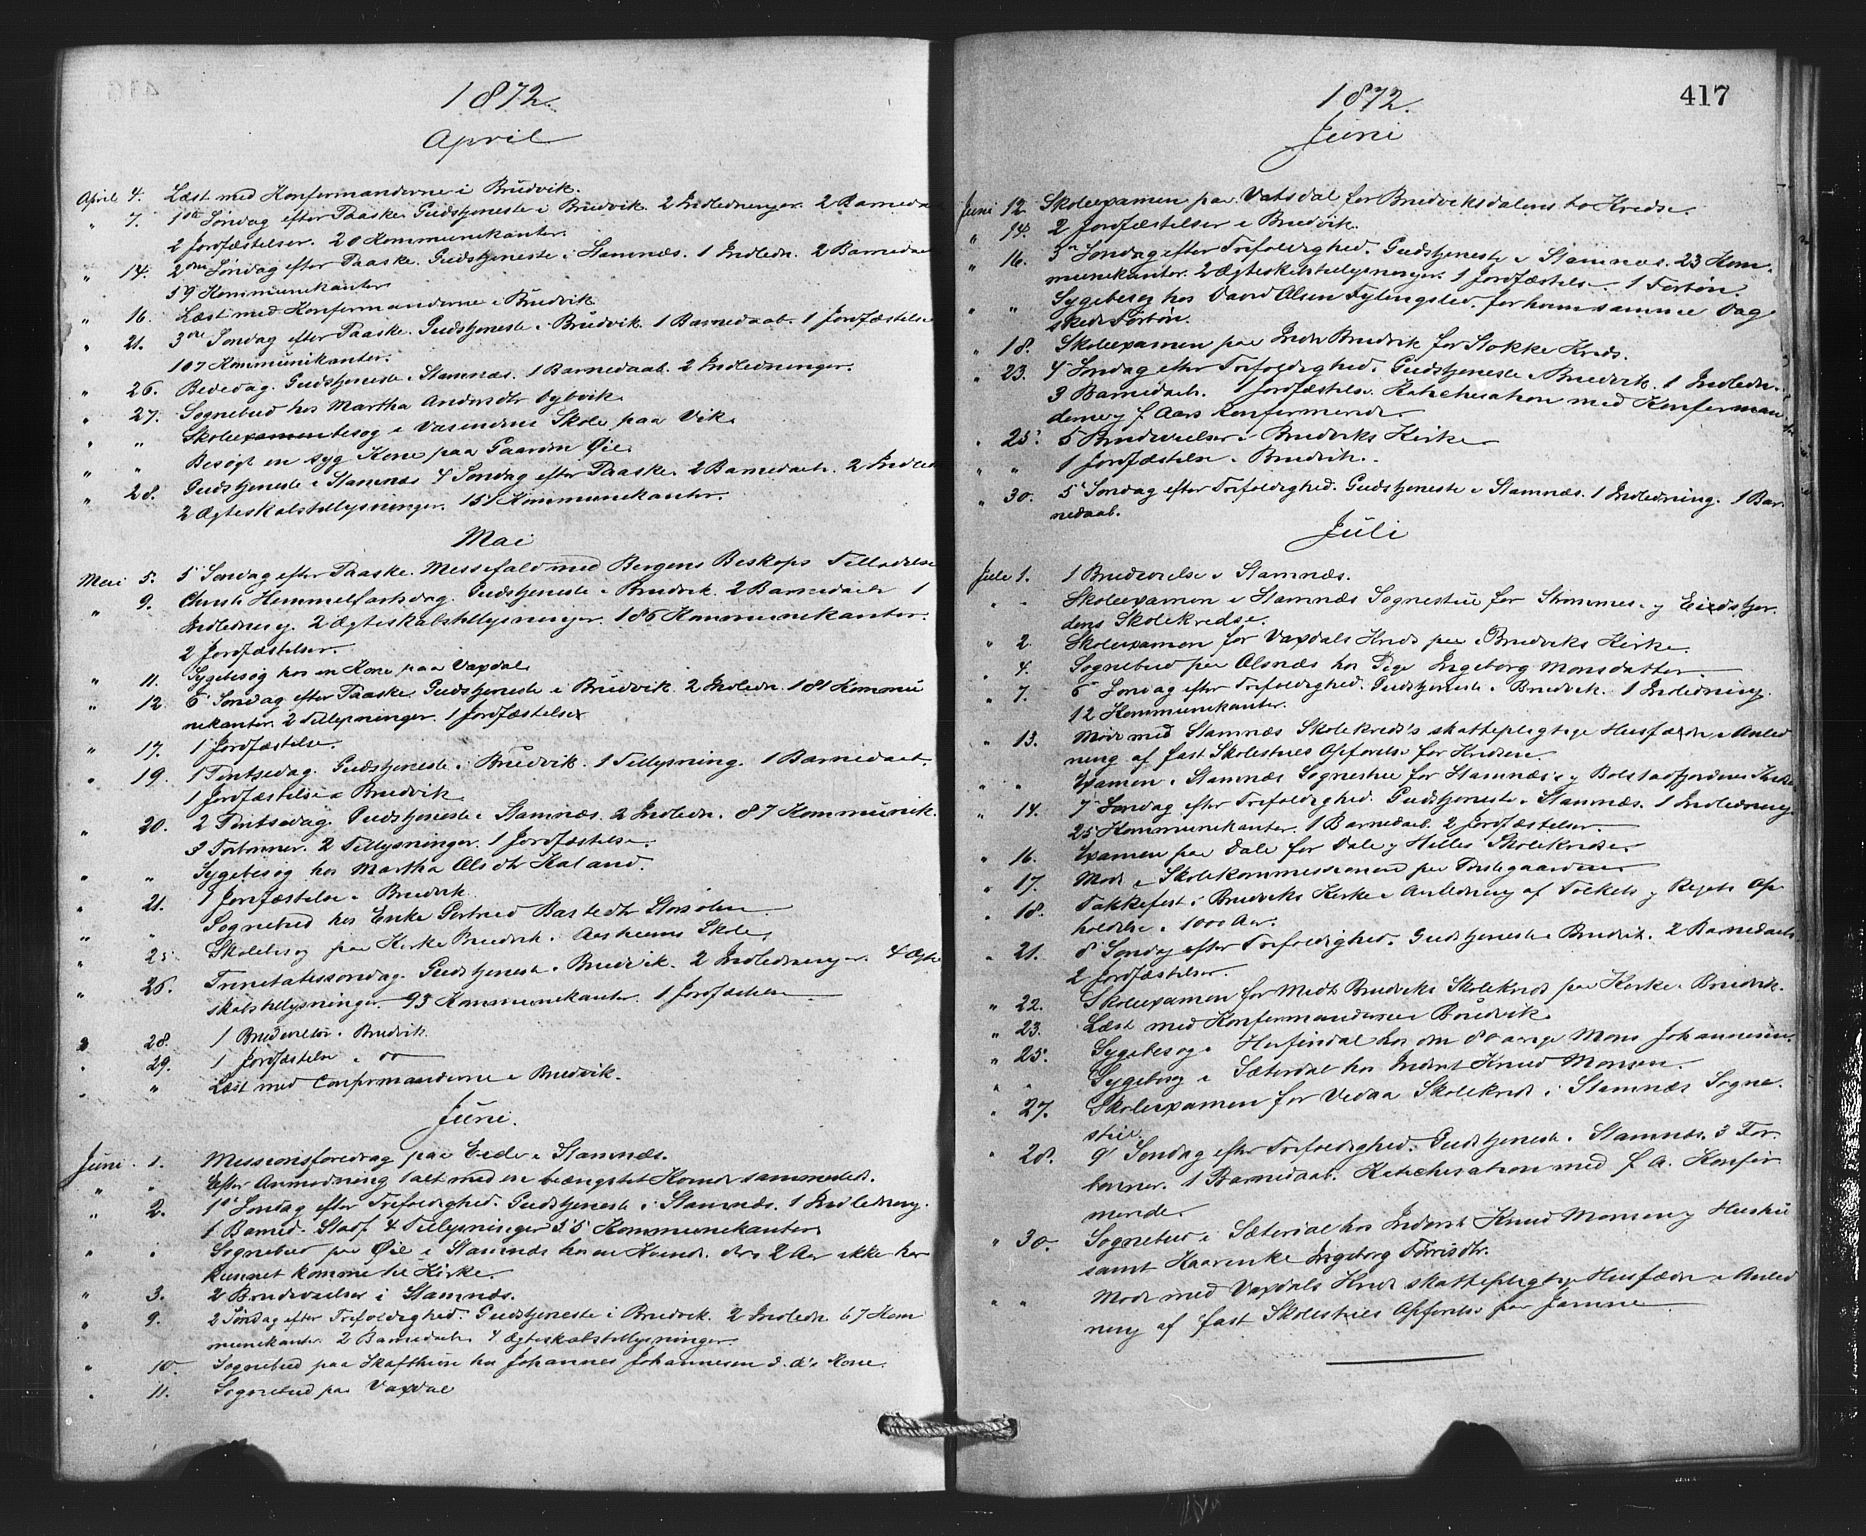 1872.
April
April 4. Læst med Konfirmanderne i Brüdvik.
" 7. 1ste Søndag efter Paaske. Gudstjeneste i Brüdvik. 2 Indledninger. 2 Barnedaab
2 Jordfæstelser. 20 Kommunikanter.
" 14. 2den Søndag efter Paaske. Gudstjeneste i Stamnæs. 1 Indledn. 2 Barnedaab
59 Kommunikanter
" 16. Læst med Konfirmanderne i Brüdvik
" 21. 3die Søndag efter Paaske. Gudstjeneste i Brüdvik. 1 Barnedaab. 1 Jordfæstelse
107 Kommunikanter.
" 26. Bededag. Gudstjeneste i Stamnæs. 1 Barnedaab. 2 Indledninger.
" 27. Sognebud hos Martha Andersdtr
" " Skolebesøg i Skole paa Vik.
" " Besøgt en syg Kone paa Gaarden Øie.
" 28. Gudstjeneste i Stamnæs 4 Søndag efter Paaske. 2 Barnedaab. 2 Indledn
2 Ægteskabstillysninger. 151 Kommunikanter.
Mai
Mai 5. 5 Søndag efter Paaske. Messefald med Bergens Biskops Tilladelse
" 9. Christi Himmelfartsdag. Gudstjeneste i Brudvik. 2 Barnedaab 1
Indledning. 2 Ægteskabstillysninger. 186 Kommunikanter.
2 Jordfæstelser.
" 11. Sygebesøg hos en Kone paa Vaxdal
" 12. 6 Søndag efter Paaske. Gudstjeneste i Brüdvik. 2 Indledn. 181 Kommu
nikanter. 2 Tillysninger. 1 Jordfæstelse
" 17. 1 Jordfæstelse.
" 19. 1 Pintsedag. Gudstjeneste i Brüdvik. 1 Tillysning. 1 Barnedaab.
1 Jordfæstelse i Brudvik
" 20. 2 Pintsedag. Gudstjeneste i Stamnæs. 2 Indledn. 87 Kommunik.
3 Forbønner. 2 Tillysninger. 1 Jordfæstelse.
" " Sygebesøg hos Martha Olsdtr Kaland.
" 21. 1 Jordfæstelse i Brudvik.
" " Sognebud hos Enke Gertrud
" 25. Skolebesøg paa Kirke Brudvik i Skole
" 26. Trinitatissøndag. Gudstjeneste i Brudvik. 2 Indledninger. 4 Ægte
skabstillysninger. 93 Kommunikanter. 1 Jordfæstelse
" 28. 1 Brudevielse i Brudvik.
" 29. 1 Jordfæstelse i do
" " Læst med Confirmanderne i Brudvik.
Jüni.
Juni 1. Missionsforedrag paa Eide i Stamnæs.
" " Efter Anmodning talt med en beængstet Kone sammesteds.
" 2. 1 Søndag efter Trefoldighed. Gudstjeneste i Stamnæs. 1 Indledning.
1 Barned. Stadf. 4 Tillysninger 35 Kommunikanter
" " Sognebud paa Øie i Stamnæs hos en Kvinde, der i 2 Aar ikke har
kunnet komme til Kirke.
" 3. 2 Brudevielser i Stamnæs.
" 9. 2 Søndag efter Trefoldighed. Gudstjeneste i Brudvik. 2 Indledn. 67 Kom
munikanter. 2 Barnedaab. 4 Ægteskabstillysninger.
" 10. Sognebud paa Skafthun hos Johannes Johannesen s. d's Kone.
" 11. Sognebud paa Vaxdal
417
1872.
Juni
Juni 12. Skoleexamen paa Vatsdal for Brudviksdalens to Kredse.
" 14. 2 Jordfæstelser i Brudvik.
" 16. 3 Søndag efter Trefoldighed. Gudstjeneste i Stamnæs. 23 Kom-
munikanter. 2 Ægteskabstillysninger. 1 Jordfæstelse. 1 Forbøn.
" " Sygebesøg hos David Olsen, for hvem samme Dag
skede Forbøn.
" 18. Skoleexamen paa Indre Brudvik for Stokke Kreds.
" 23. 4 Søndag efter Trefoldighed. Gudstjeneste i Brudvik. 1 Indledn.
3 Barnedaab. 1 Jordfæstelse. Katechisation med Konfirman-
derne og f. Aars Konfirmerede
" 25. 5 Brudevielser i Brudviks Kirke
" " 1 Jordfæstelse i Brudvik.
" 30. 5 Søndag efter Trefoldighed. Gudstjeneste i Stamnæs. 1 Indledning. 1 Bar-
nedaab.
Juli
Juli 1. 1 Brudevielse i Stamnæs.
" " Skoleexamen i Stamnæs Sognestue for Strømmes- og Eidsfjor
dens Skolekredse.
" 2. Skoleexamen for Vaxdals Kreds paa Brudviks Kirke.
" 4. Sognebud paa Olsnæs hos Pige Ingeborg Monsdatter
" 7. 6 Søndag efter Trefoldighed. Gudstjeneste i Brudvik. 1 Indledning.
12 Kommunikanter.
" 13. Møde med Stamnæs Skolekreds's skattepligtige Husfædre i Anled
ning af fast Skolestues Opførelse for Kredsen
" " Examen i Stamnæs Sognestue for Stamnæs's og Bolstadfjordens
" 14. 7 Søndag efter Trefoldighed. Gudstjeneste i Stamnæs. 1 Indledning
25 Kommunikanter. 1 Barnedaab. 2 Jordfæstelser.
" 16. Examen paa Dale for Dale og Helles Skolekredse
" 17. Møde i Skolekommissionen paa Præstegaarden
" 18. Takkefest i Brudviks Kirke i Anledning af Folkets og Rigets Op
holdelse i 1000 Aar.
" 21. 8 Søndag efter Trefoldighed. Gudstjeneste i Brudvik. 2 Barnedaab.
2 Jordfæstelser.
" 22. Skoleexamen for Midt Brudviks Skolekreds paa Kirke Brudvik.
" 23. Læst med Konfirmanderne i Brudvik
" 25. Sygebesøg i Herfindal hos den 80 aarige Mons Johannessen.
" " Sygebesøg i Sæterdal hos Inderst Knud Monsen.
" 27. Skoleexamen for Vedaa Skolekreds i Stamnæs Sogne-
stue.
" 28. 9 Søndag efter Trefoldighed. Gudstjeneste i Stamnæs. 3 For-
bønner. 1 Barnedaab. Katechisation med f. A. Konfir
merede.
" 30. Sognebud i Sæterdal hos Inderst Knud Monsen og Hustru
samt Kaarenke Ingeborg
" " Møde med Vaxdals Kreds skattepligtige Husfædre i Anled
ning af fast Skolestues Opførelse for samme